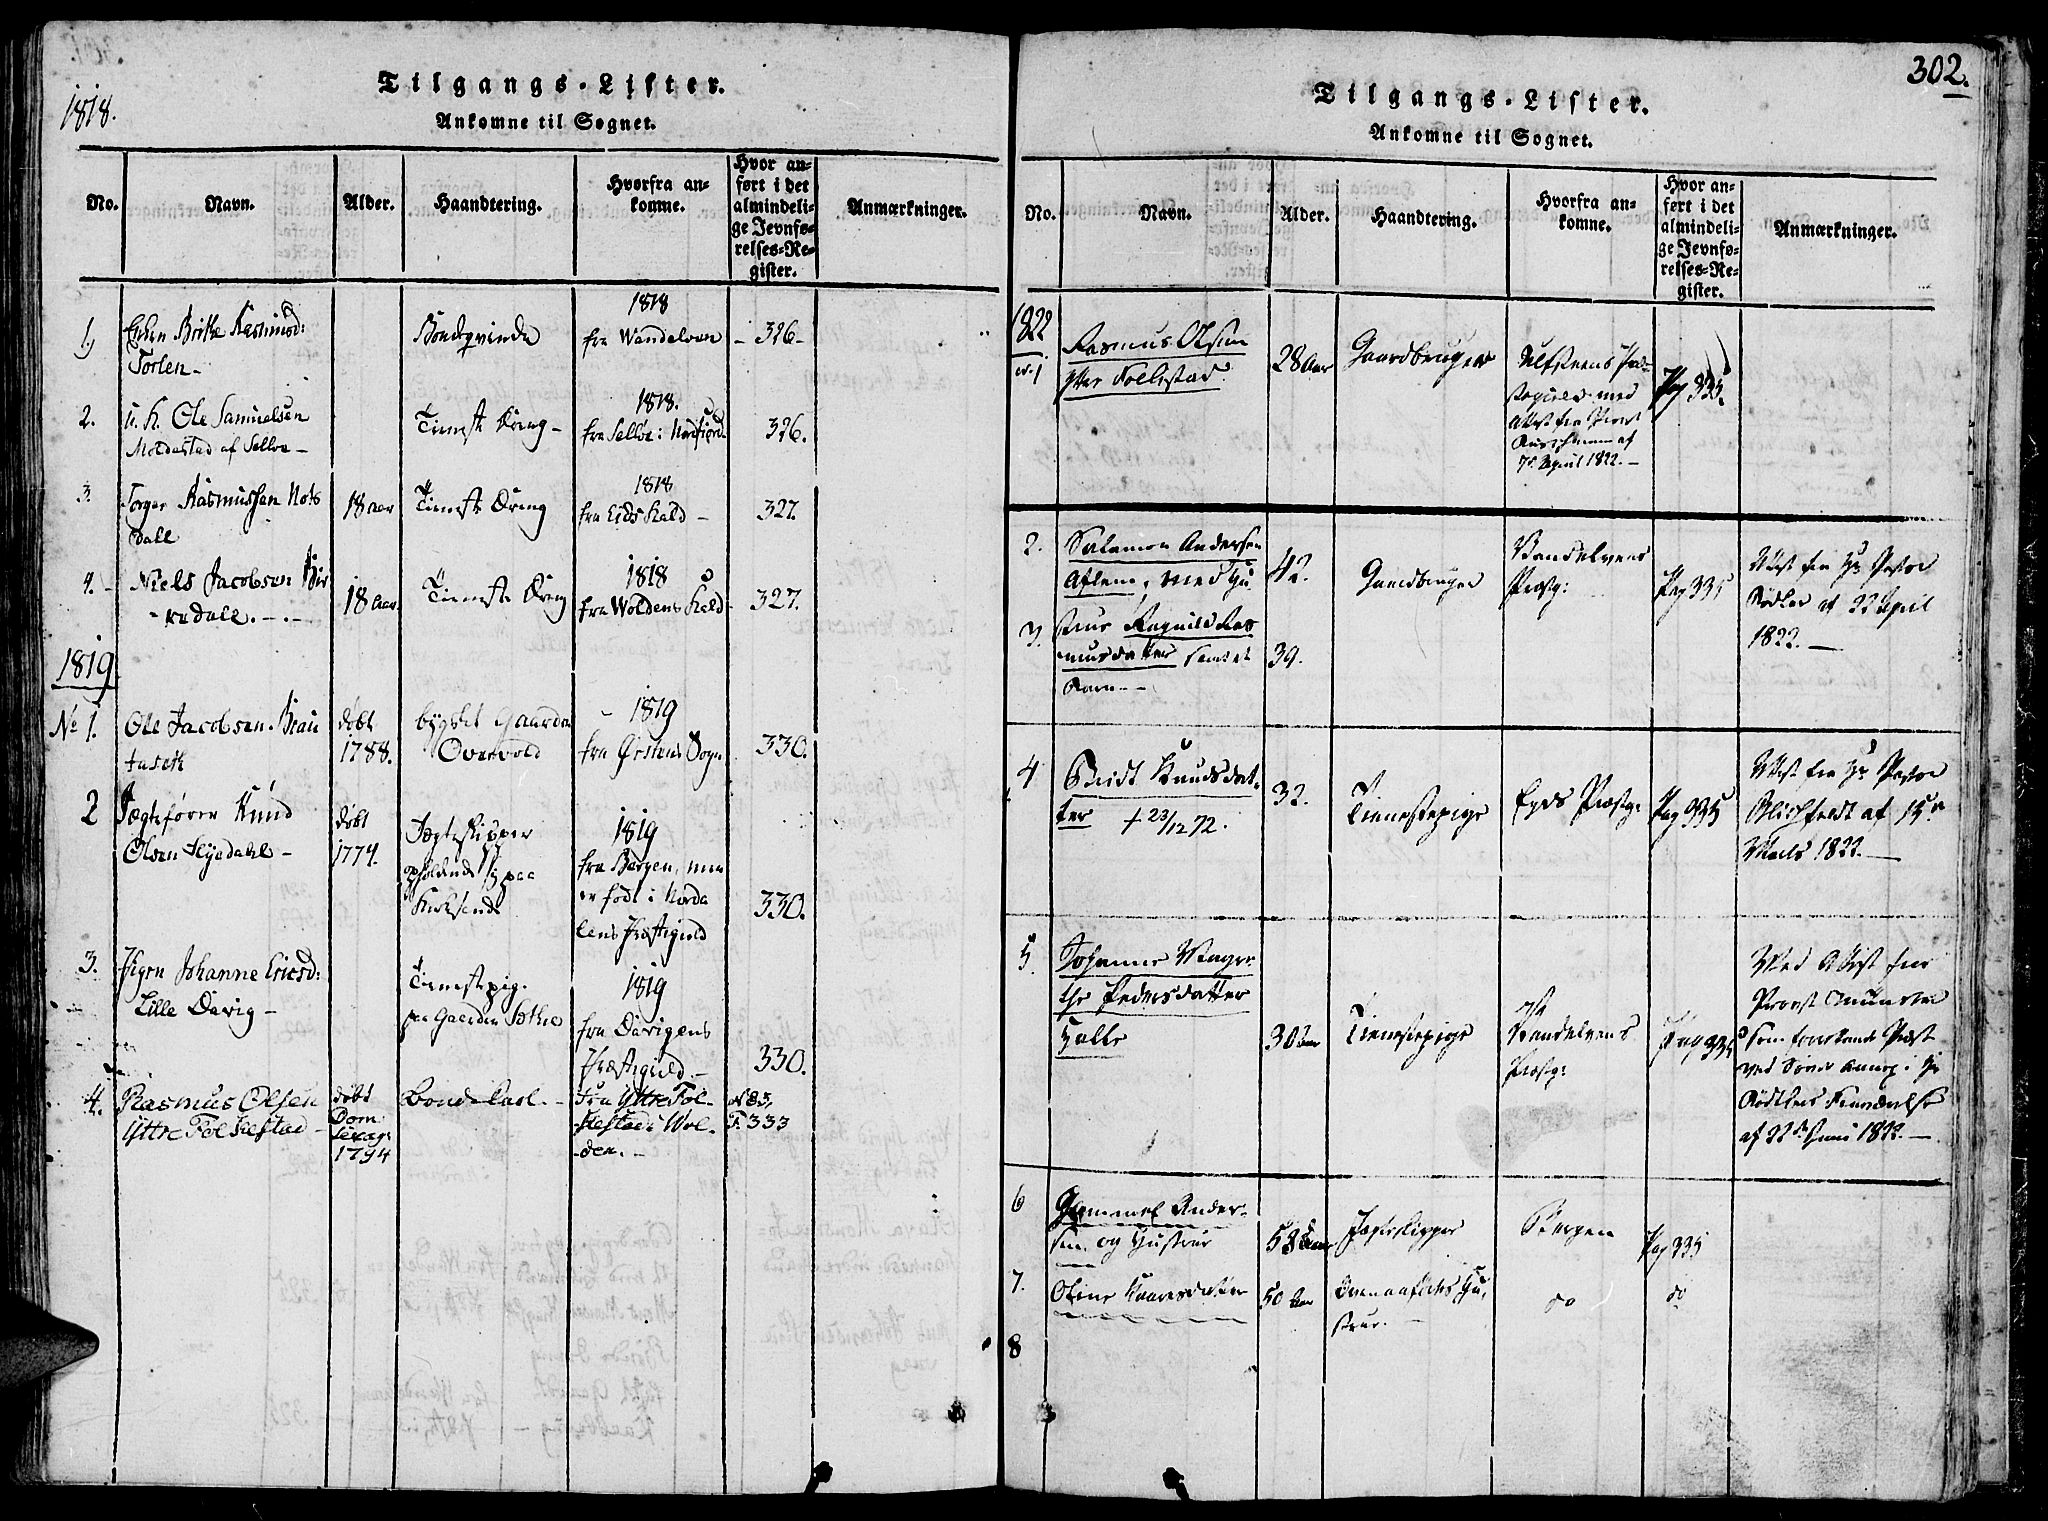 1818.
Tilgangs-Lister.
Ankomne til Sognet.
No.
Navn.
Alder.
Haandtering.
Hvorfra an-
komme.
Hvor an-
ført i det
almindeli-
ge Jevnfø-
relses-Re-
gister.
Anmærkninger.
1.
Enken Brithe Rasmusd:
Torlen -
Bondeqvinde
1818
fra Wandelven
- 326 -
2.
u. k. Ole Samuelsen
Moldestad af Selloe -
Tieneste Dreng -
1818.
fra Selloe i Nordfiord
326.
3.
Torger Rasmussen Nots
dall
18 aar
Tieneste Dreng
1818
fra Eids Kald -
327.
4. -
Niels Jacobsen Bir
kedall. - . -
18 aar.
Tieneste Dreng
1818
fra Woldens Kald -
327.
1819
No 1.
Ole Jacobsen Brau
tuseth
døbt
1788.
bygslet Gaarden
Overvold
1819
fra Ørstens Sogn
330.
2
Jægtefører Knud
Olsen Hyedahl -
døbt
1774.
Jægteskipper
opholdende sig paa
1819
fra Bergen, men
er født i Norda
lens Præstegield
330.
3.
Pigen Johanne Ericsd:
Lille Davig -
Tienestepig.
paa Gaarden
1819
fra Davigens
Præstegield. -
330.
4.
Rasmus Olsen
Yttre Folkestad -
døbt
Dom.
Sexag:
1794
Bondekarl. -
Fra Yttre Fol-
kestad i Wol-
den. -
N 83,
F. 333
302.
Tilgangs-Lister.
Ankomne til Sognet.
No.
Navn.
Alder.
Haandtering.
Hvorfra an-
komne.
Hvor an-
ført i det
almindeli-
ge Jevnfø-
relses-Re-
gister.
Anmærkninger.
1822
N. 1
Rasmus Olsen
Ytter Folkestad.
28 Aar
Gaardbruger
Ulfsteens Præ-
stegield med
Attest fra Præst
Buschmann af
7de April 1822. -
Pag 335.
2.
Salamon Andersen
Aflem, med Hu
42.
Gaardbruger
Vandelvens
Præstg:
Pag 335
Attest fra Hr Pastor
Rødler af 22 April
1822. -
3.
strue Ragnild Ras
musdatter samt et
Barn. -
39.
4
Berit Knudsdat-
ter + 23/12 72.
32.
Tienestepige
Eyds Præstg:
Pag 335
Attest fra Hr Pastor
Blichfeldt af 15de
Marts 1822. -
5.
Johanne Magre-
the Pedersdatter
Halle
30 Aar
Tienestepige
Vandelvens
Præstg:
Pag 335
Med Attest fra
Provst
som Præst
ved Annex i Hr
Rødlers
af 22de Juni 1822. -
6
Gammel Ander-
sen og Hustrue
58 Aar
Jægteskipper
Bergen
Pag 335
7.
Oline Knudsdatter
50 Aar
Ovenanførtes Hu-
strue. -
do
do
8